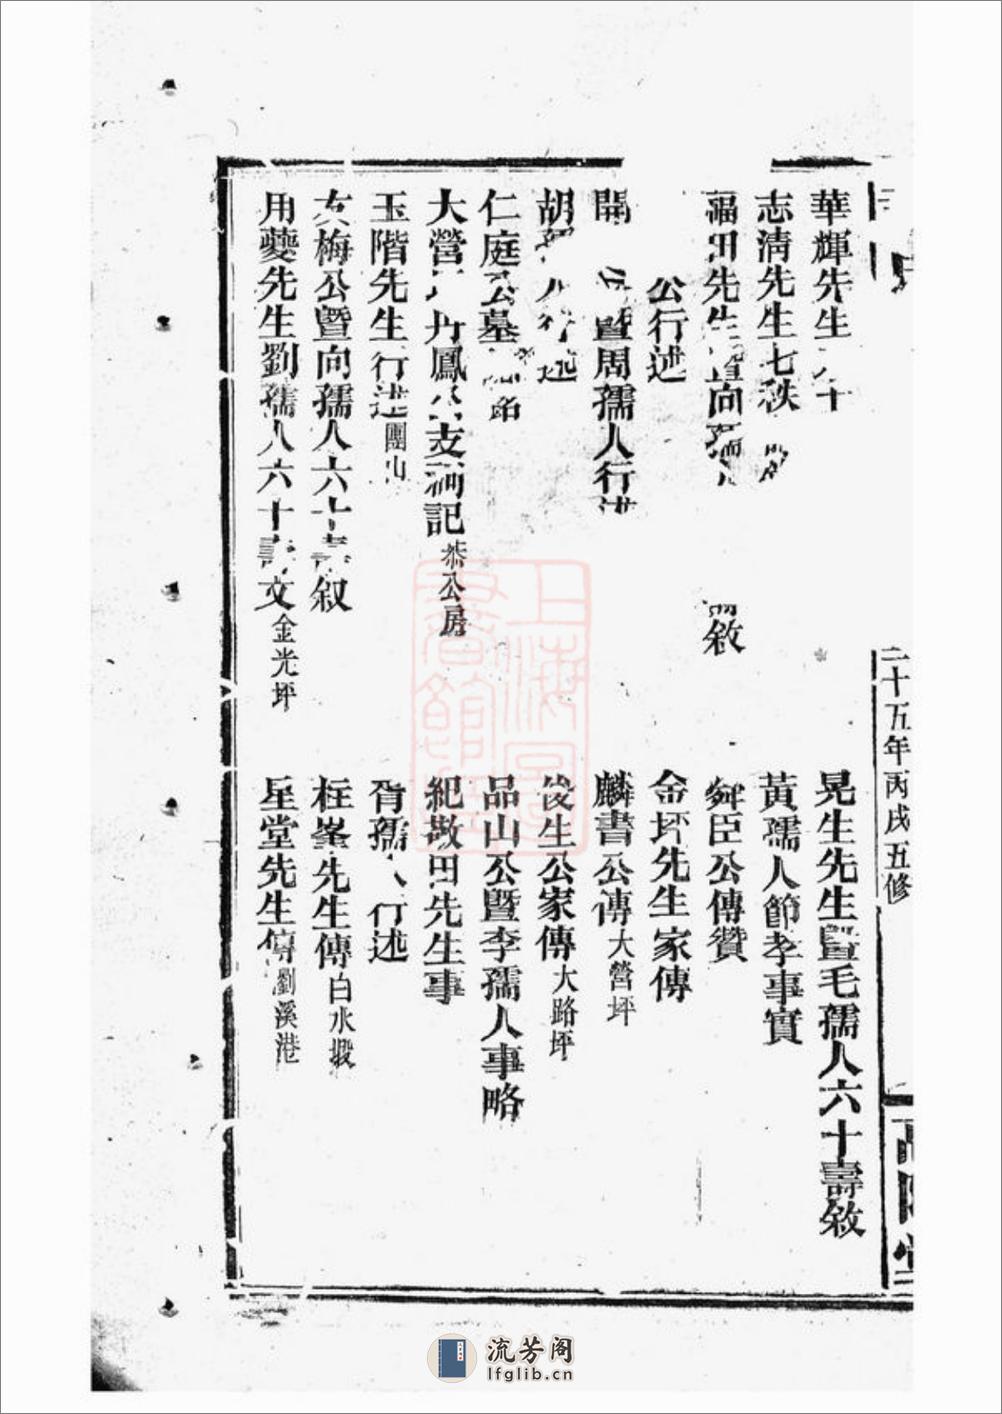 二十五年丙戌五修
華輝先生 十
晃生先生暨毛孺人六十壽敘
志清先生七秩
黃孺人節孝事實
福田先生暨向孺人
敘
舜臣公傳贊
公行述
金坏先生家傳
開 暨周孺人行述
麟書公傳大營坪
胡 人行述
俊生公家傳大路坪
仁庭公墓 銘
品山公暨李孺人事略
大營 丹鳳公支祠記恭公房
紀敬田先生事
玉階先生行述團山
胥孺人行述
梅公暨向孺人六十壽叙
柱峯先生傳白水塅
用夔先生劉孺人六十壽文金光坪
星堂先生傳劉溪港
上海圖書館藏
流芳阁
lfglib.cn